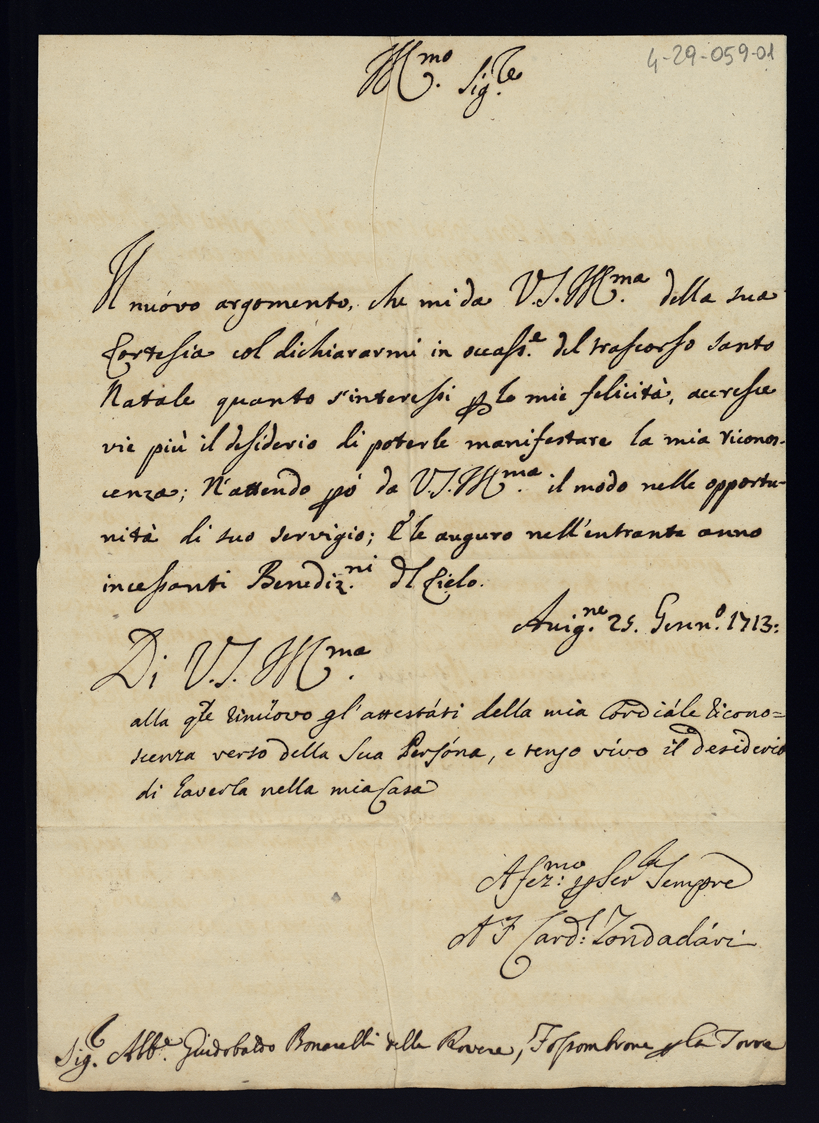 4-29-059-01
Ill.mo Sig.re
Il nuovo argomento, che mi da V.S. Ill.ma della sua
Cortesia col dichiararmi in occass.e del trascorso santo
Natale quanto s'interessi p le mie felicità, accresce
vie più il desiderio di poterle manifestare la mia riconos-
cenza; N'attendo pò da V.S. Ill.ma il modo nelle opportu-
nità di suo servigio; E le auguro nell'entrante anno
incessanti Bendiz.ni dl Cielo.
Avig.ne 25. Genn.o 1713:
Di V.S. Ill.ma
alla qle rinuovo gl'attestáti della mia Cordiále Ricono=
scenza verso della Sua Persóna, e tengo vívo il desiderio
di raverla nella mia Casa
Afez.mo p Ser.la Sempre
A F Card.l Zondadári
Sig.r Abb.e Guidobaldo Bonarelli della Rovere, Fossombrone p la Torre